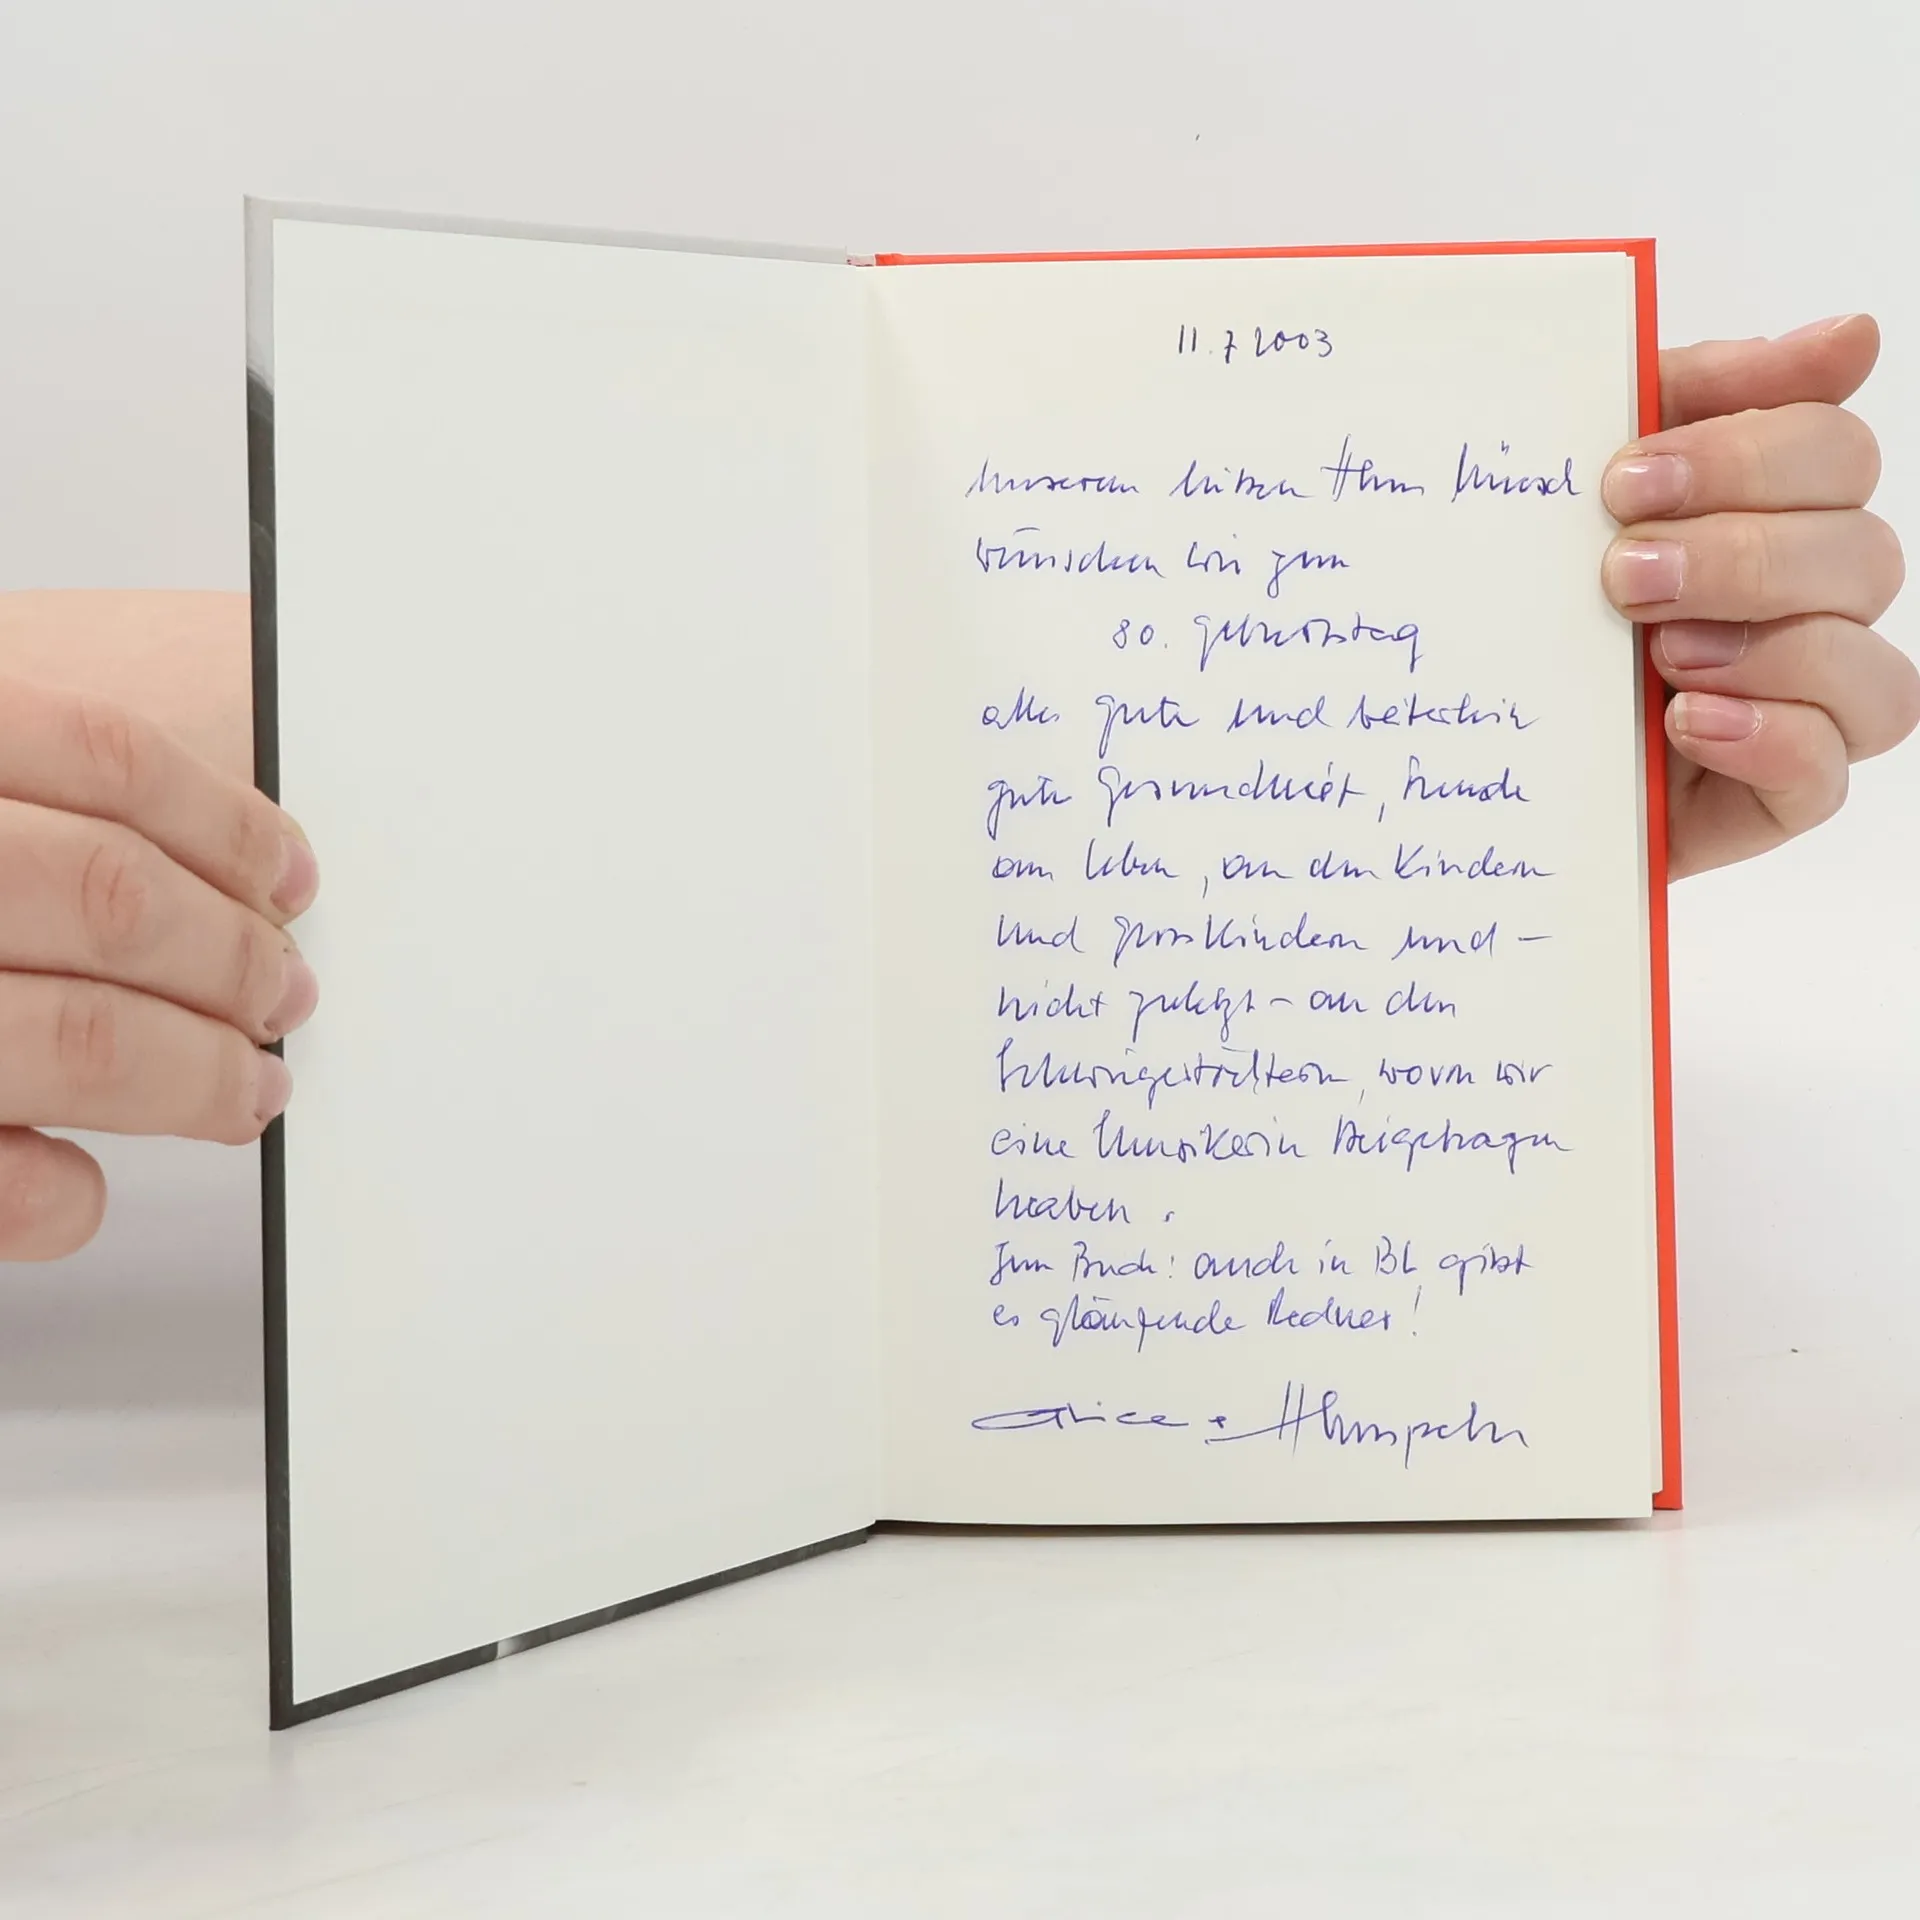 11.7 2003
Unserem lieben Hans
wünschen wir zum
80. Geburtstag
alles gute und weiterhin
gute Gesundheit, Freude
am Leben, an den Kindern
und Grosskindern und –
nicht zuletzt – an den
Schwiegertöchtern, wovon wir
eine Musikerin beigetragen
haben.
Zum Buch: auch in BL gibt
es glänzende Redner!
Alice + Hanspeter